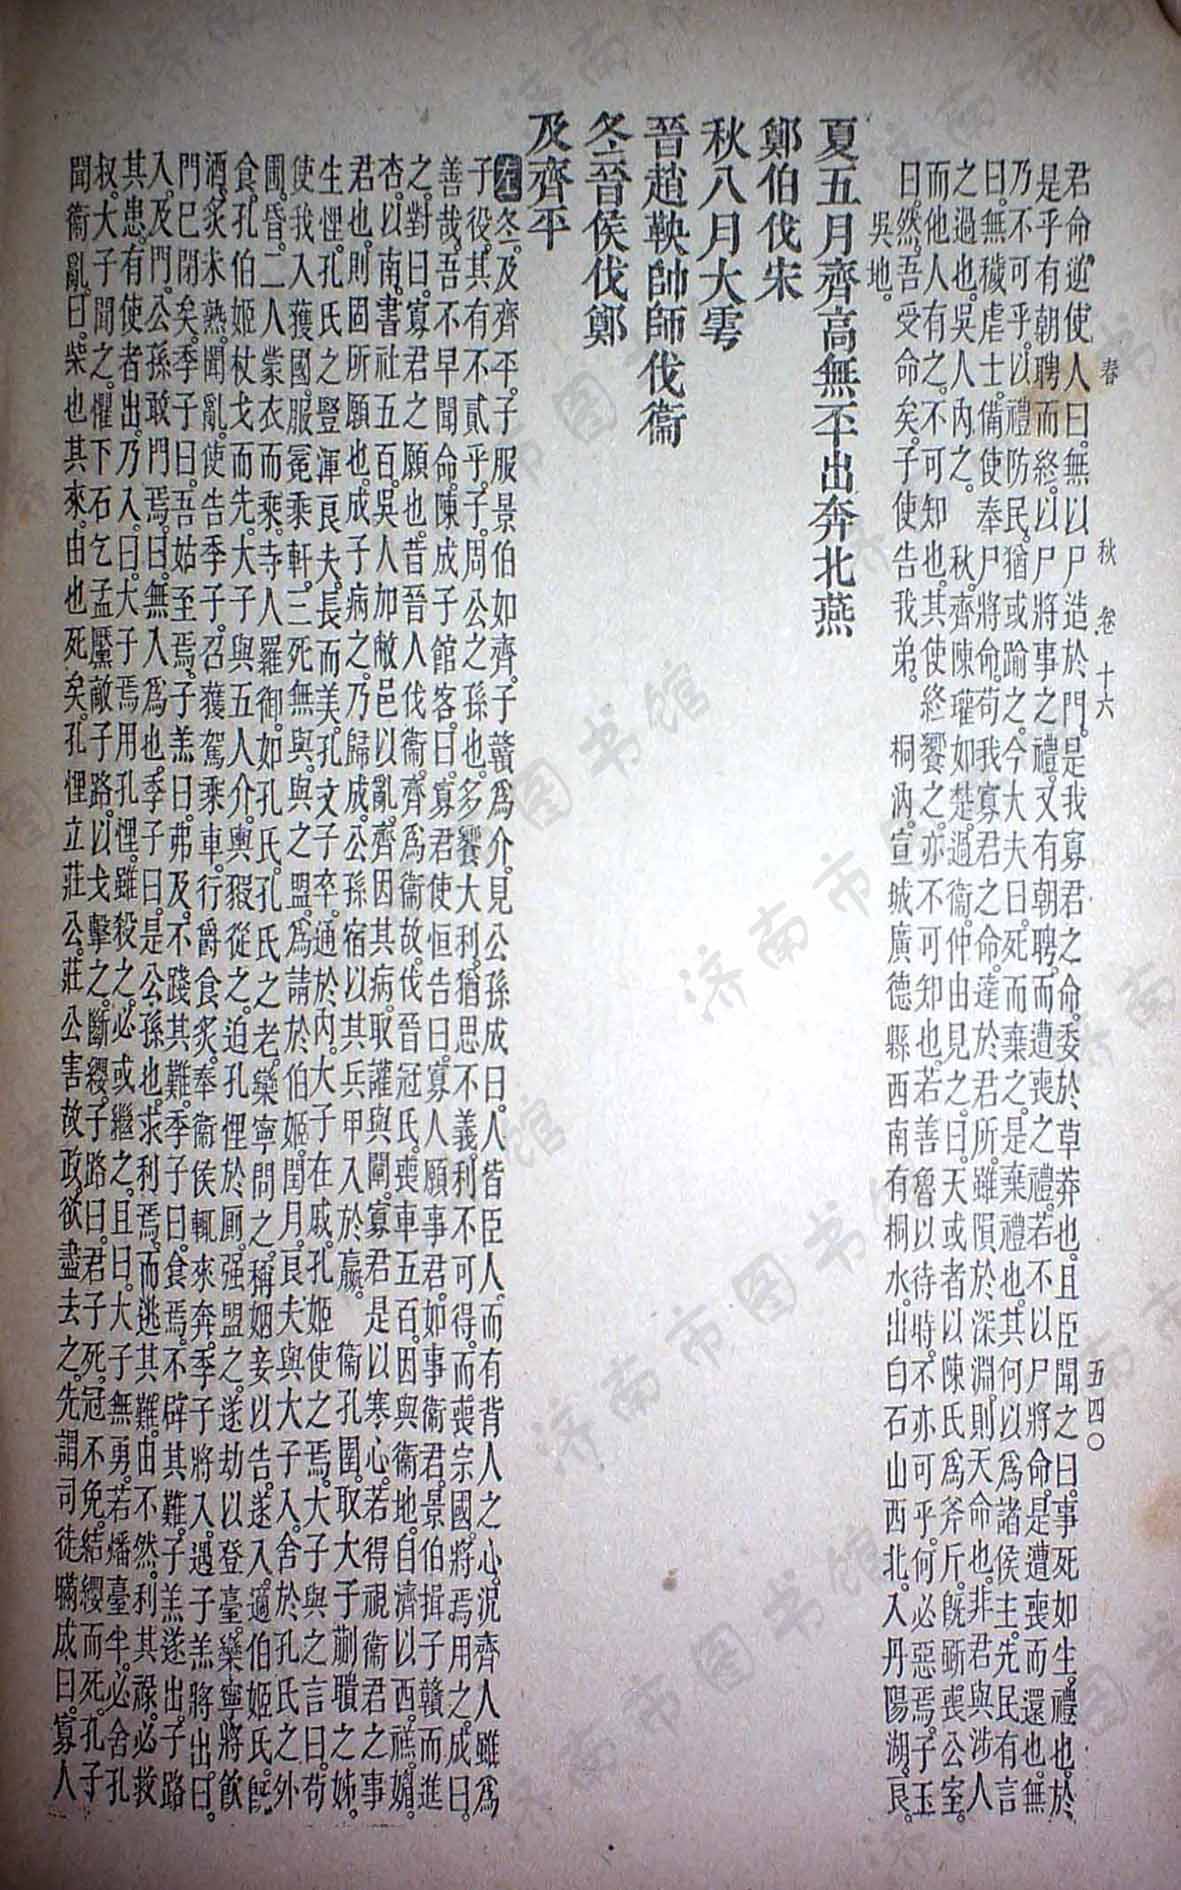 春秋 卷十六 五四〇
君命逆使人曰。無以尸造於門。是我寡君之命。委於草莽也。且臣聞之曰。事死如生。禮也。於
是乎有朝聘而終。以尸將事之禮。又有朝聘。而遭喪之禮。若不以尸將命。是遭喪而還也。無
乃不可乎。以禮防民。猶或踰之。今大夫曰。死而棄之。是棄禮也。其何以爲諸侯主。先民有言
曰。無穢虐士。備使奉尸將命。苟我寡君之命。達於君所。雖隕於深淵。則天命也。非君與涉人
之過也。吳人內之。 秋。齊陳瓘如楚。過衞。仲由見之。曰。天或者以陳氏爲斧斤。旣斲喪公室。
而他人有之。不可知也。其使終饗之。亦不可知也。若善魯以待時。不亦可乎。何必惡焉。子玉
曰。然。吾受命矣。子使告我弟。 桐汭。宣城廣德縣西南有桐水。出白石山西北。入丹陽湖。良。
吳地。
夏五月齊高無㔻出奔北燕
鄭伯伐宋
秋八月大雩
晉趙鞅帥師伐衞
冬晉侯伐鄭
及齊平
左冬。及齊平。子服景伯如齊。子贛爲介。見公孫成曰。人皆臣人。而有背人之心。況齊人雖爲
子役。其有不貳乎。子。周公之孫也。多饗大利。猶思不義。利不可得。而喪宗國。將焉用之。成曰。
善哉。吾不早聞命。陳成子館客。曰。寡君使恒告曰。寡人願事君。如事衞君。景伯揖子贛而進
之。對曰。寡君之願也。昔晉人伐衞。齊爲衞故。伐晉冠氏。喪車五百。因與衞地。自濟以西。禚。媚。
杏。以南。書社五百。吳人加敝邑以亂。齊因其病。取讙與闡。寡君是以寒心。若得視衞君之事
君也。則固所願也。成子病之。乃歸成。公孫宿以其兵甲入於嬴。 衞孔圉。取大子蒯聵之姊。
生悝。孔氏之豎渾良夫。長而美。孔文子卒。通於內。大子在戚。孔姬使之焉。大子與之言曰。苟
使我入獲國。服冕乘軒。三死無與。與之盟。爲請於伯姬。閏月。良夫與大子入。舍於孔氏之外
圃。昏。二人蒙衣而乘。寺人羅御。如孔氏。孔氏之老欒寧問之。稱姻妾以告。遂入。適伯姬氏。旣
食。孔伯姬杖戈而先。大子與五人介。輿豭從之。迫孔悝於厠。强盟之。遂劫以登臺。欒寧將飮
酒。炙未熟。聞亂。使告季子。召獲駕乘車。行爵食炙。奉衞侯輒來奔。季子將入。遇子羔將出。曰。
門已閉矣。季子曰。吾姑至焉。子羔曰。弗及。不踐其難。季子曰。食焉。不辟其難。子羔遂出。子路
入。及門。公孫敢門焉。曰。無入爲也。季子曰。是公孫也。求利焉。而逃其難。由不然。利其祿。必救
其患。有使者出。乃入。曰。大子焉用孔悝。雖殺之。必或繼之。且曰。大子無勇。若燔臺半。必舍孔
叔。大子聞之懼。下石乞盂黶敵子路。以戈擊之。斷纓。子路曰。君子死。冠不免。結纓而死。孔子
聞衞亂。曰。柴也其來。由也死矣。孔悝立莊公。莊公害故政。欲盡去之。先謂司徒瞞成曰。寡人